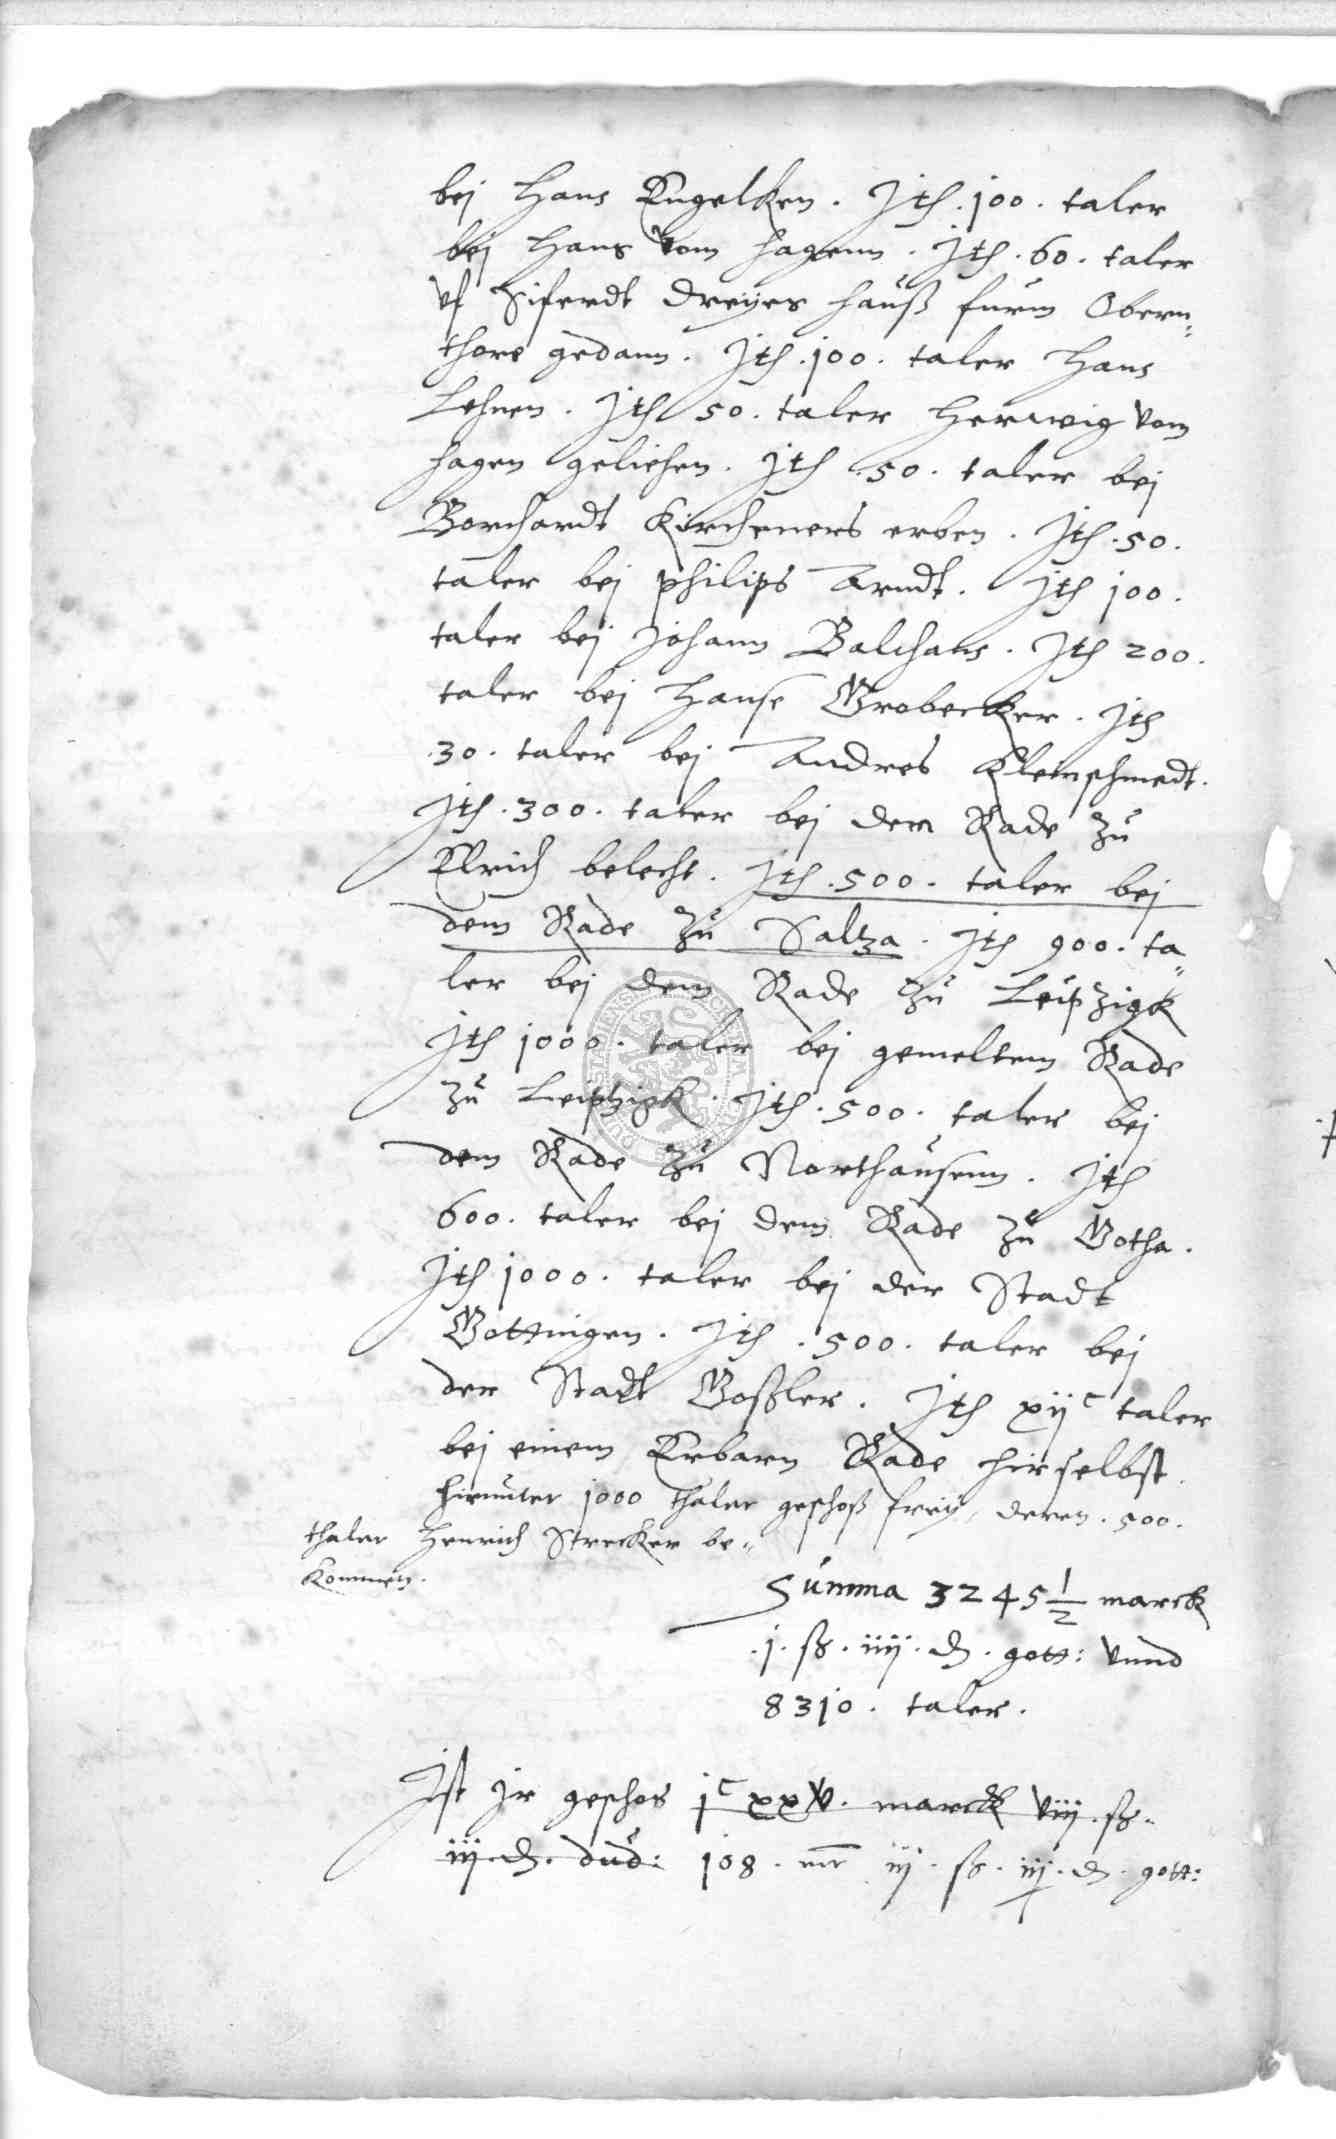 bej Hans Engelken. Jth. 100. taler
bej Hans vom Hagenn. Jth. 60. taler
vf Siferdt Dreyes hauß furm Obern„
thore gedann. Jth. 100. taler Hans
Lehnen. Jth 50. taler Herwig vom
Hagen geliehen. Jth. 50. taler bej
Borchardt Kircheners erben. Jth. 50.
taler bej philips Arndt. Jth 100.
taler bej Johann Balchans. Jth 200.
taler bej Hanse Grobecker. Jth
.30. taler bej Andres Kleinschmedt.
Jth. 300. taler bej dem Rade zu
Elrich belecht. Jth. 500. taler bej
dem Rade zu Saltza. Jth 900. ta„
ler bej dem Rade zu Leipzigk
Jth 1000. taler bej gemeltem Rade
zu Leiptzigk. Jth. 500. taler bej
dem Rade zu Northausenn. Jth
600. taler bej dem Rade zu Gotha.
Jth 1000. taler bej der Stadt
Gottingen. Jth. 500. taler bej
der Stadt Goßler. Jth xijc taler
bej einem Erbarn Rade hirselbst.
hirunter 1000 thaler geschoß frey, deren. 500.
thaler Henrich Strecker be„
kommen.
Summa 3245 1/2 marck
.j. ß. iiij. d. gott: vnnd
8310. taler.
Jst jr geschos jc xxv. marck viij. ß.
iij. d. dud: 108. mr iij. ß. iij. d. gott: